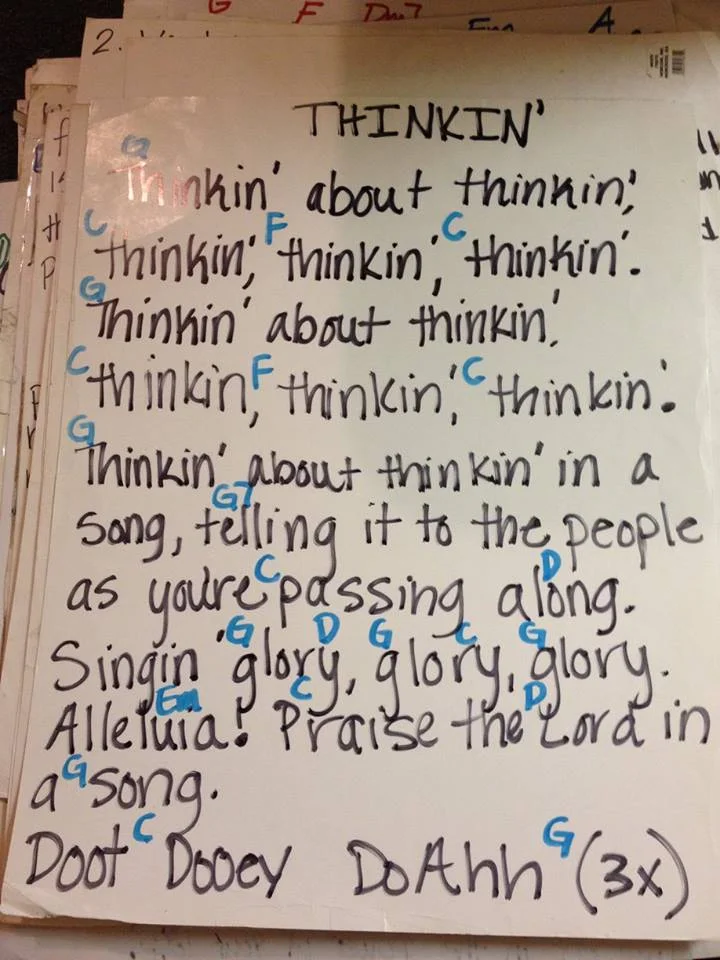 G F Dm7
2. Em A
THINKIN'
G
Thinkin' about thinkin',
C F C
thinkin', thinkin', thinkin'.
G
Thinkin' about thinkin',
C F C
thinkin, thinkin', thinkin'.
G
Thinkin' about thinkin' in a
G7
song, telling it to the people
C D
as you're passing along.
G D G C G
Singin' glory, glory, glory.
Em C D
Alleluia! Praise the Lord in
G
a song.
C G
Doot Dooey Do Ahh (3x)